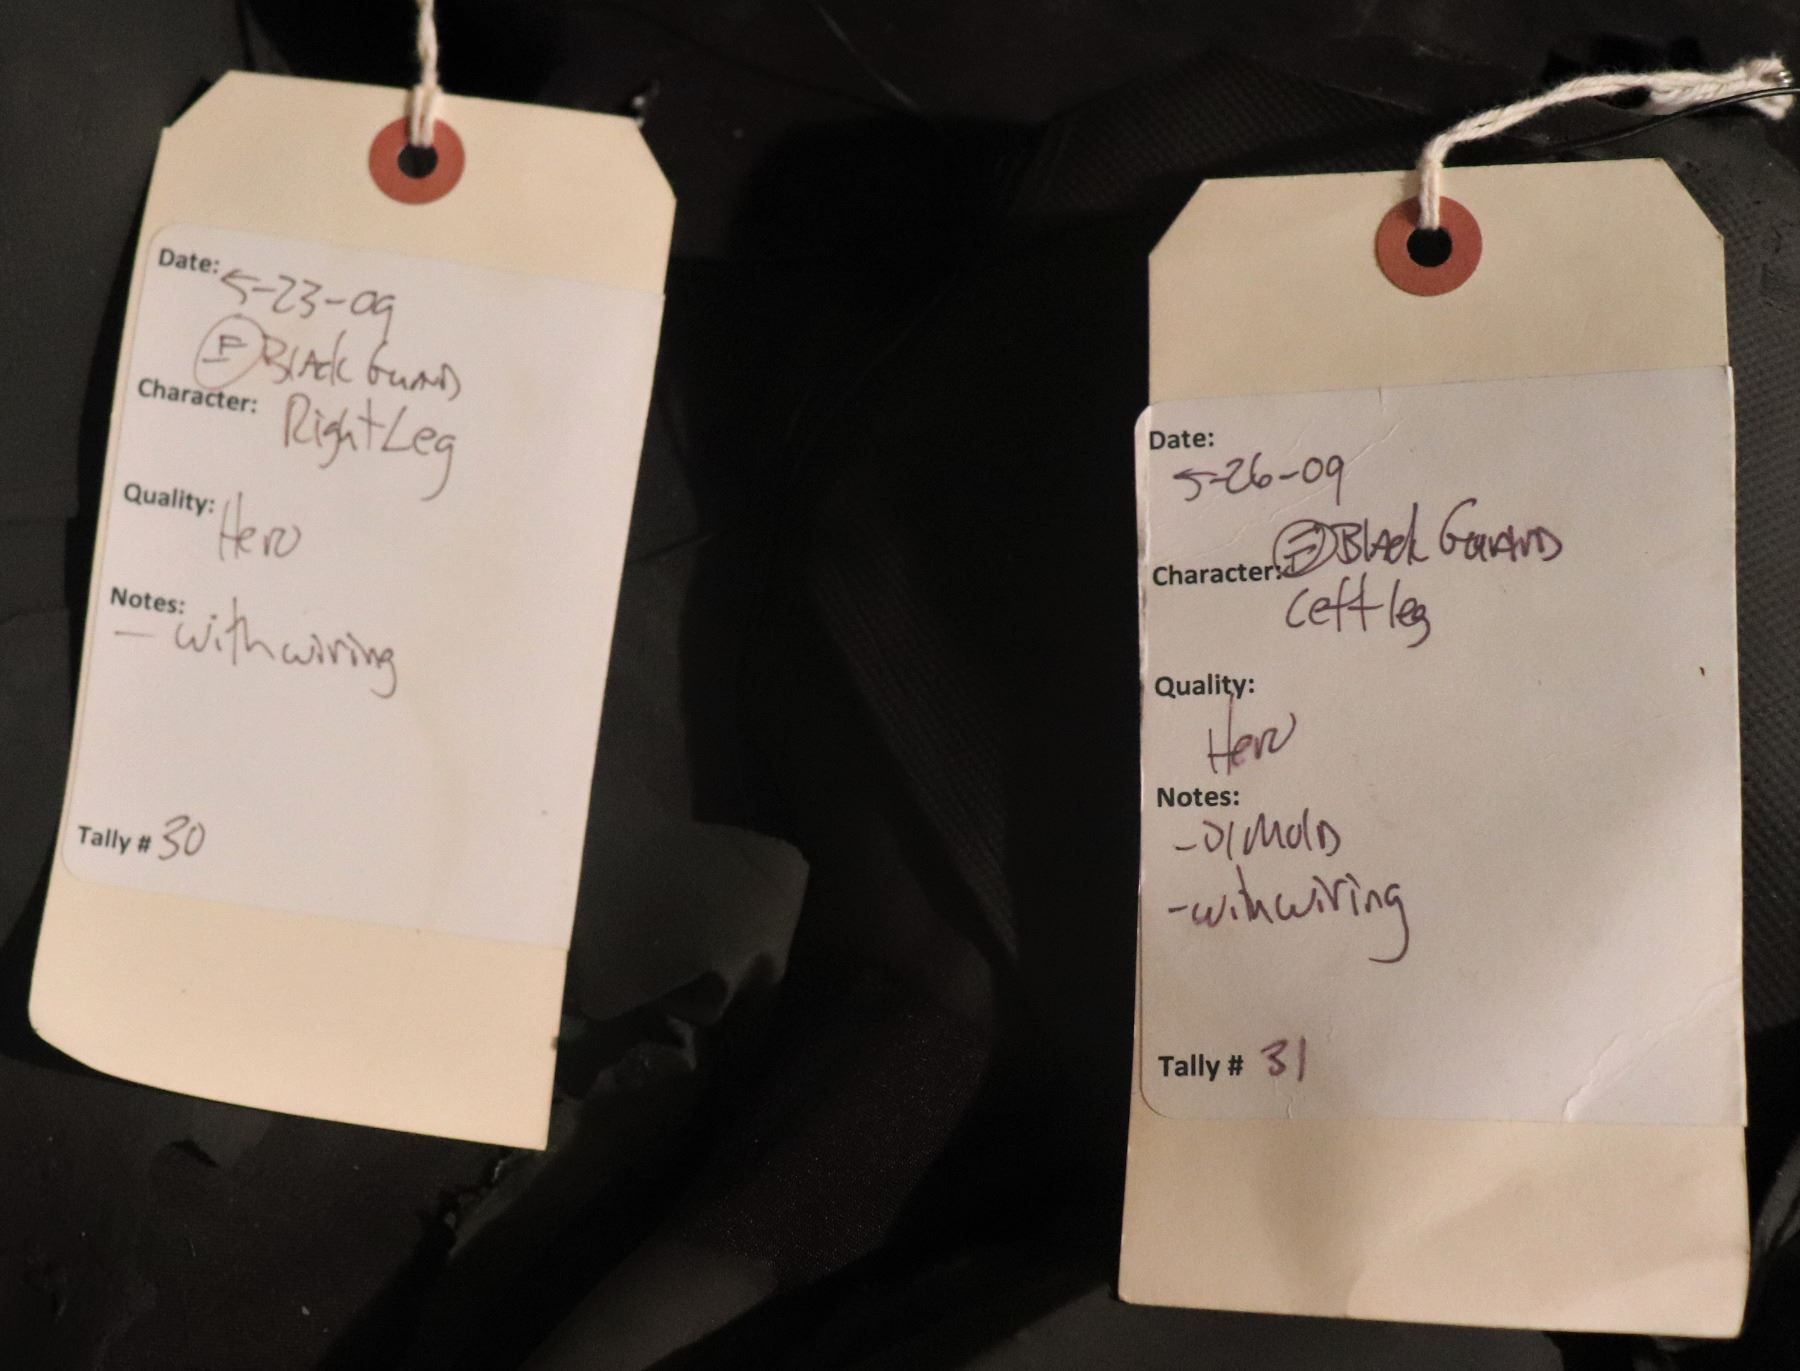 Date: 5-23-09
F Black Guard
Character: Right Leg
Quality: Hero
Notes:
- with wiring
Tally # 30
Date:
5-26-09
F Black Guard
Character:
Left leg
Quality:
Hero
Notes:
- Mold
- with wiring
Tally # 31